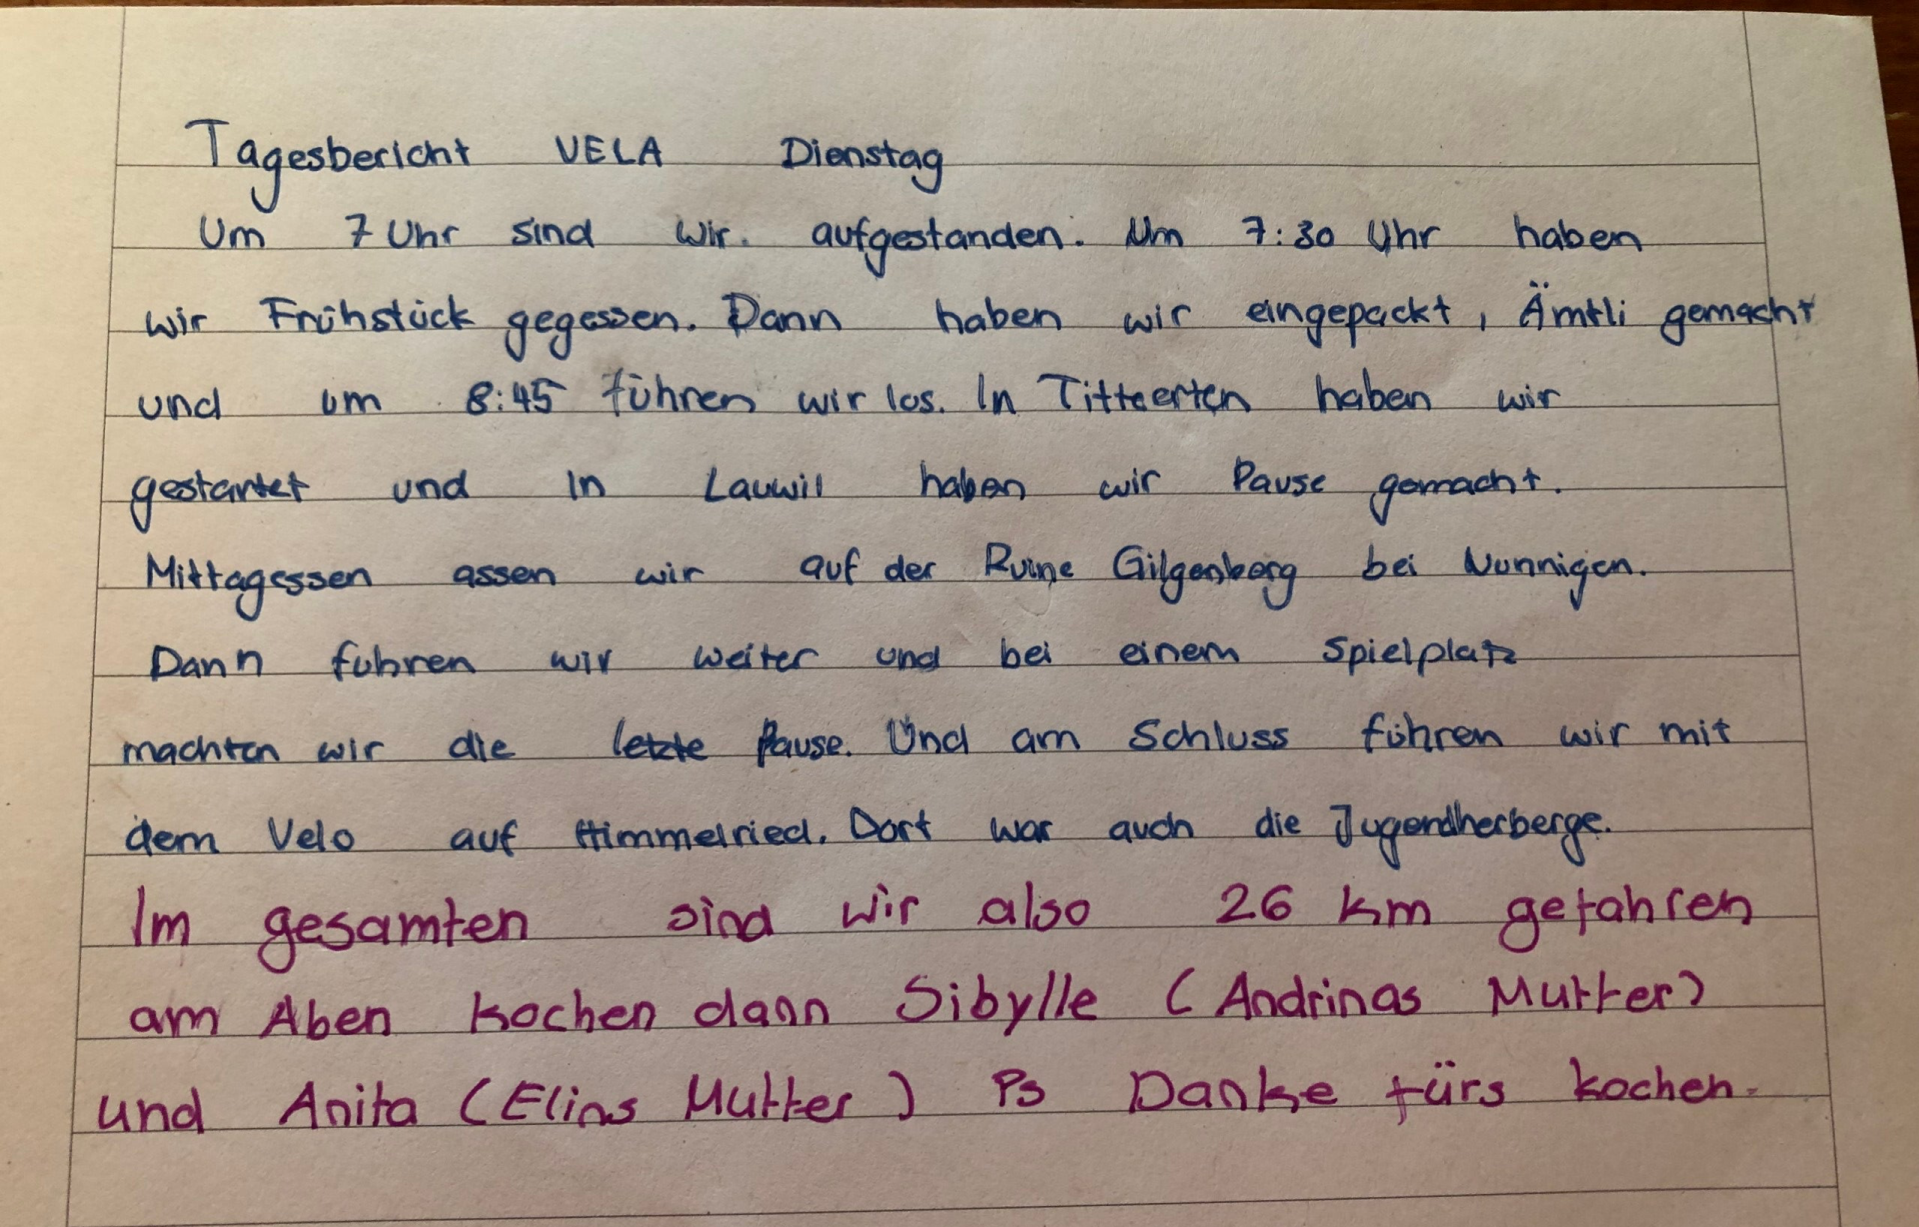 Tagesbericht VELA Dienstag
Um 7 Uhr sind wir. aufgestanden. Um 7:30 Uhr haben
wir Frühstück gegessen. Dann haben wir eingepackt, Ämtli gemacht
und um 8:45 führen wir los. In Titterten haben wir
gestartet und in Lauwil haben wir Pause gemacht.
Mittagessen assen wir auf der Ruine Gilgenberg bei Nunnigen.
Dann fuhren wir weiter und bei einem Spielplatz
machten wir die letzte Pause. Und am Schluss führen wir mit
dem Velo auf Himmelried. Dort war auch die Jugendherberge.
Im gesamten sind wir also 26 km gefahren
am Aben kochen dann Sibylle (Andrinas Mutter)
und Anita (Elins Mutter) Ps Danke fürs kochen.